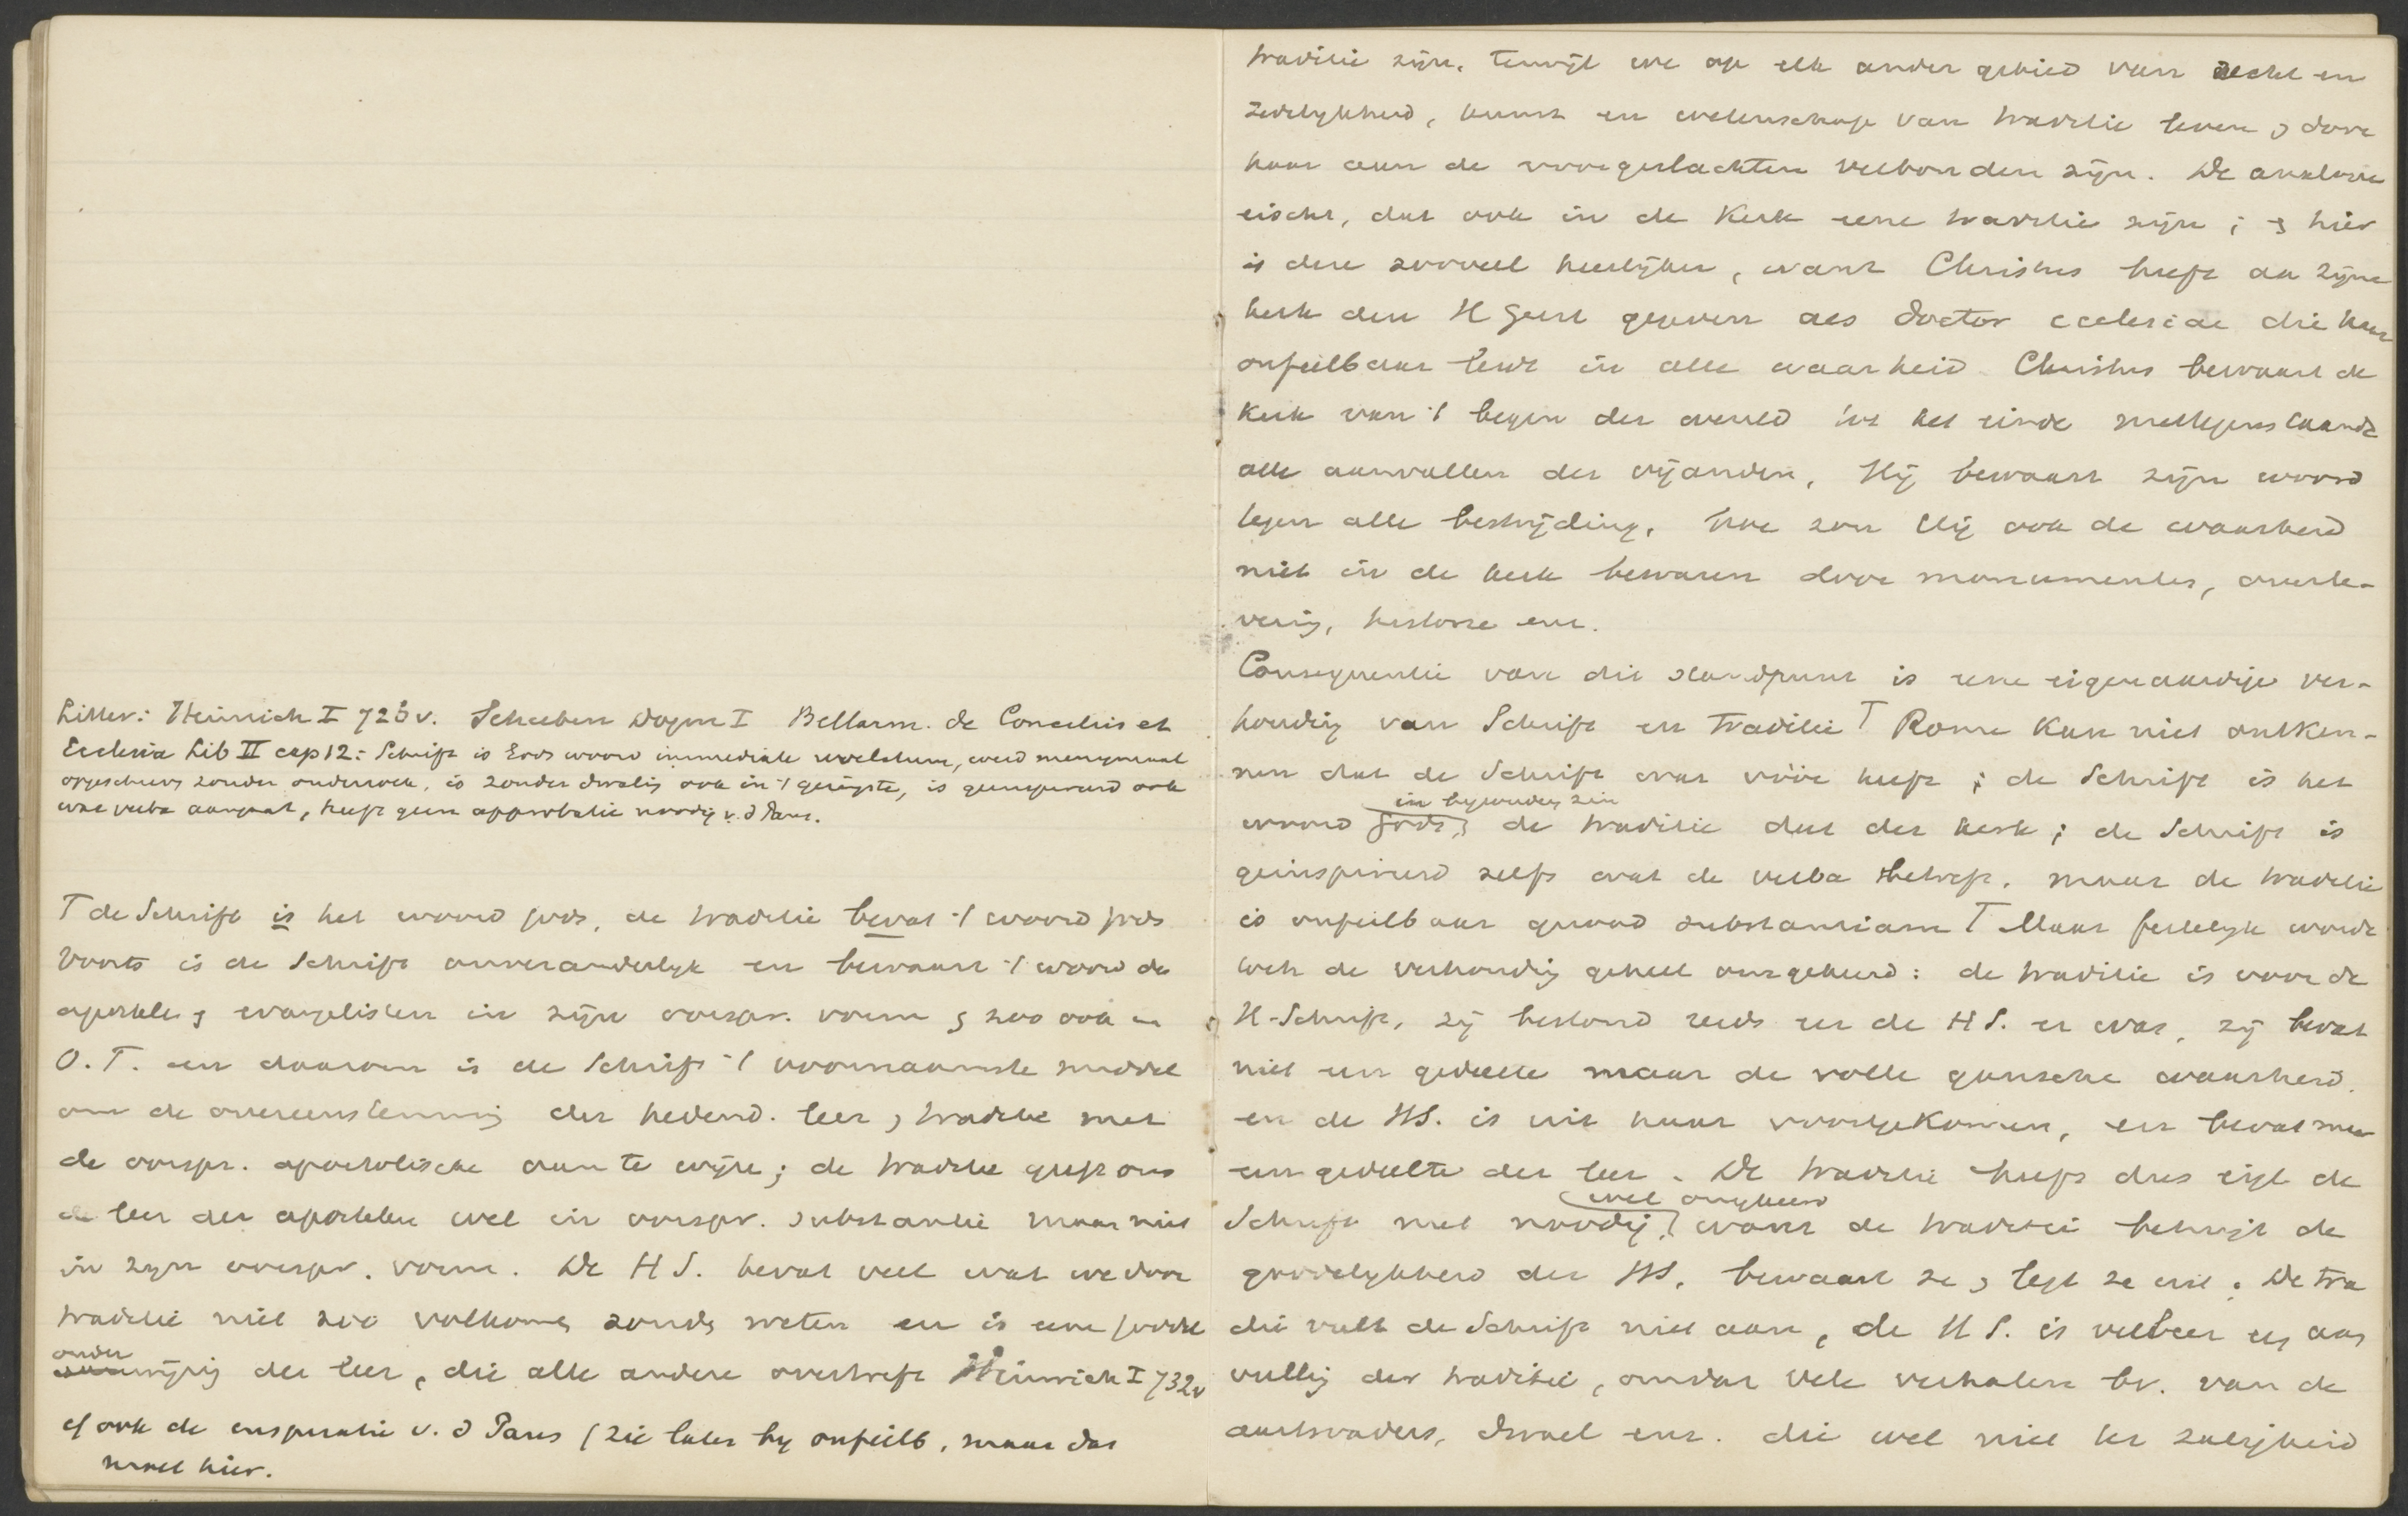 Litter: Heinrich I 723v. Scheeben Dogm I Bellarm. de Conciliis et
Ecclesia Lib II cap 12: Schrift is Gods woord immediate revelatum, werd menigmaal
opgeschreven zonder onderzoek, is zonder dwaling ook in 't geringste, is geinspireerd ook
wat verba aangaat, heeft geen approbatie noodig v. d Paus.
T de Schrift is het woord Gods, de traditie bevat 't woord Gods
Voorts is de Schrift onveranderlyk en bewaart 't woord der
apostelen en evangelisten in zijn oorspr. vorm en zoo ook in
O. T. en daarom is de Schrift 't voornaamste middel
om de overeenstemming der hedend. leer en traditie met
de oorspr. apostolische aan te wijzen; de traditie geeft ons
de leer der apostelen wel in oorspr. substantie maar niet
in zyn oorspr. vorm. De H S. bevat veel wat we door
traditie niet zoo volkomen zouden weten en is eene soort
onder
wijzing der leer, die alle andere overtreft Heinrich I 732v
cf ook de inspiratie v. d Paus (zie later by onfeilb, maar dat
moet hier.
traditie zijn. Terwijl we op elk ander gebied van recht en
zedelykheid, kunst en wetenschap van traditie leven en door
haar aan de voorgeslachten verbonden zijn. De analogie
eischt, dat ook in de Kerk eene traditie zijn; en hier
is deze zooveel heerlijker, want Christus heeft aan zijne
kerk den H Geest gegeven als doctor ecclesiae die haar
onfeilbaar leidt in alle waarheid Christus bewaart de
Kerk van 't begin der wereld tot het einde niettegenstaande
alle aanvallen der vijanden, Hij bewaart zijn woord
tegen alle bestrijding, hoe zou Hij ook de waarheid
niet in de kerk bewaren door monumenten, overle-
vering, historie enz.
Consequentie van dit standpunt is eene eigenaardige ver-
houding van Schrift en traditie T Rome kan niet ontken-
nen dat de Schrift wat vóór heeft; de Schrift is het
in byzonderen zin
woord Gods, de traditie dat der kerk; de Schrift is
geinspireerd zelfs wat de verba betreft, maar de traditie
is onfeilbaar quoad substantiam T Maar feitelyk wordt
toch de verhouding geheel omgekeerd: de traditie is voor de
H-Schrift, zij bestond reeds eer de H S. er was, zij bevat
niet een gedeelte maar de volle gansche waarheid.
en de HS. is uit haar voortgekomen, en bevat maar
een gedeelte der leer. De traditie heeft dus eigl de
wel omgekeerd
Schrift niet noodig, want de traditie betuigt de
goddelykheid der HS, bewaart ze en legt ze uit. De tra
ditie vult de Schrift niet aan, de H S. is veeleer een aan
vulling der traditie, omdat vele verhalen bv. van de
aartsvaders, Israel enz. die wel niet ter zaligheid